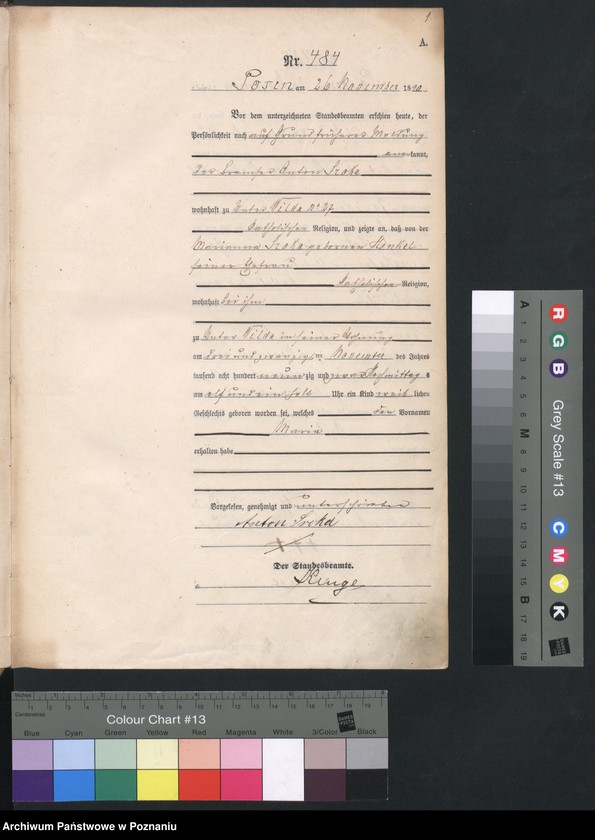 1
A.
Nr. 484
Posen am 26 November 1890
Vor dem unterzeichneten Standesbeamten erschien heute, der
Persönlichkeit nach auf Grund früherer Meldung
kannt,
des Anton
wohnhaft zu Unter Wilda No 27
katholischer Religion, und zeigte an, daß von der
Marianna geborenen Henkel
seiner Ehefrau
katholischer Religion,
wohnhaft bei ihm
zu Unter Wilda in seiner Wohnung
am drei und zwanzigsten November des Jahres
tausend acht hundert neunzig und Nachmittags
um elf und ein halb Uhr ein Kind weiblichen
Geschlechts geboren worden sei, welches den Vornamen
Maria
erhalten habe
Vorgelesen, genehmigt und unterschrieben
Anton
Der Standesbeamte.
Inches
Centimetres
Colour Chart #13
Blue Cyan Green Yellow Red Magenta White 3/Color Black
R G B Grey Scale #13 C M Y K
A 1 2 3 4 5 6 M 8 9 10 11 12 13 14 15 B 17 18 19
Archiwum Państwowe w Poznaniu